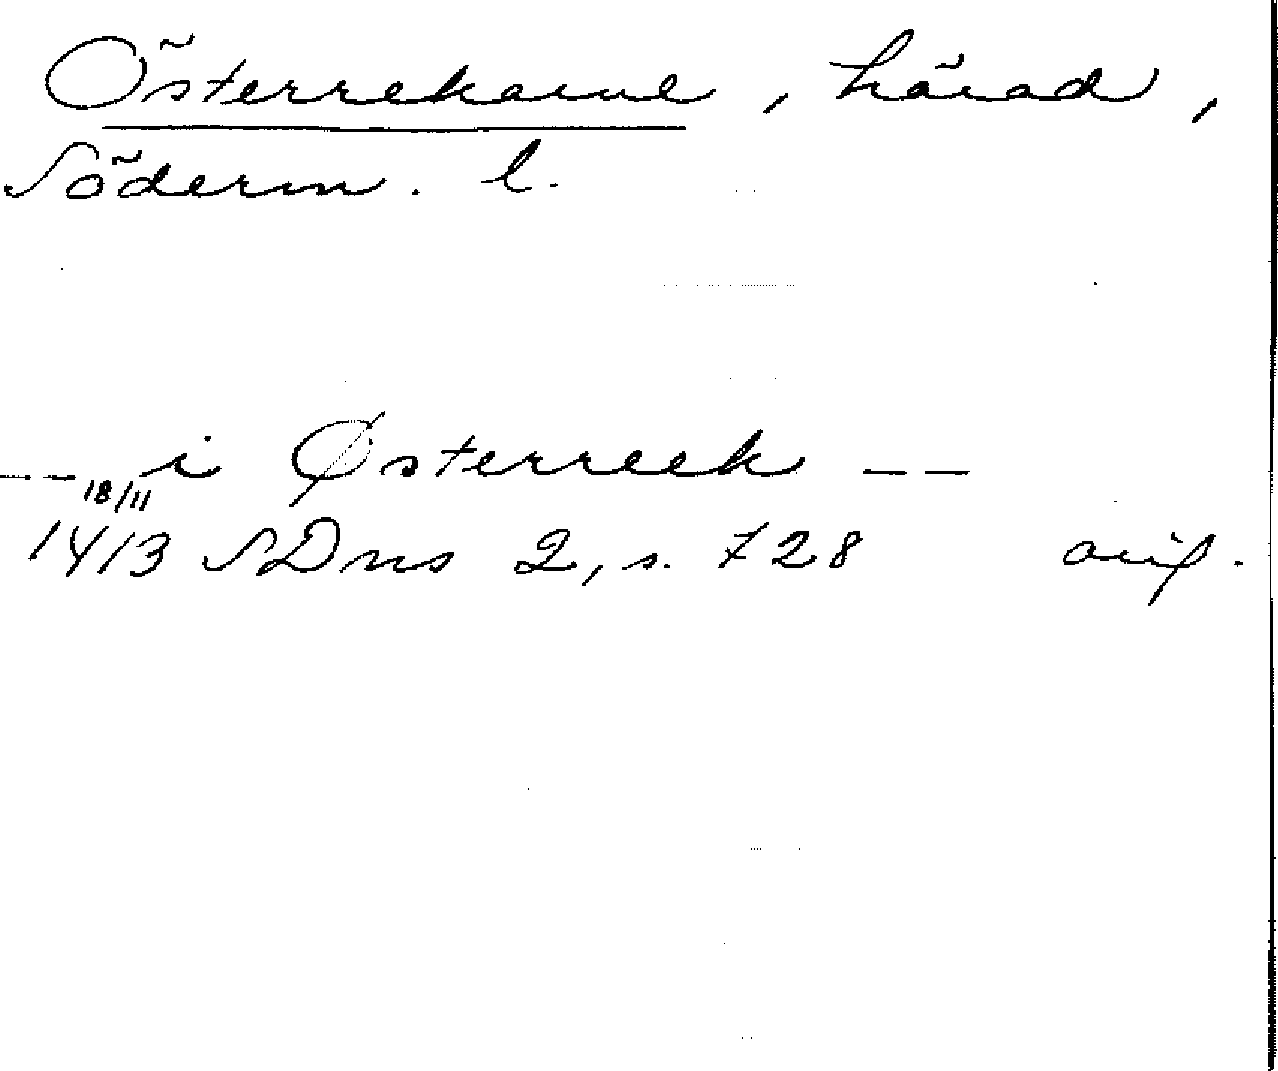 Österrekarne, härad,
Söderm. l.
-- i Østerreek --
18/11
1413 SDns 2, s. 728 avs.